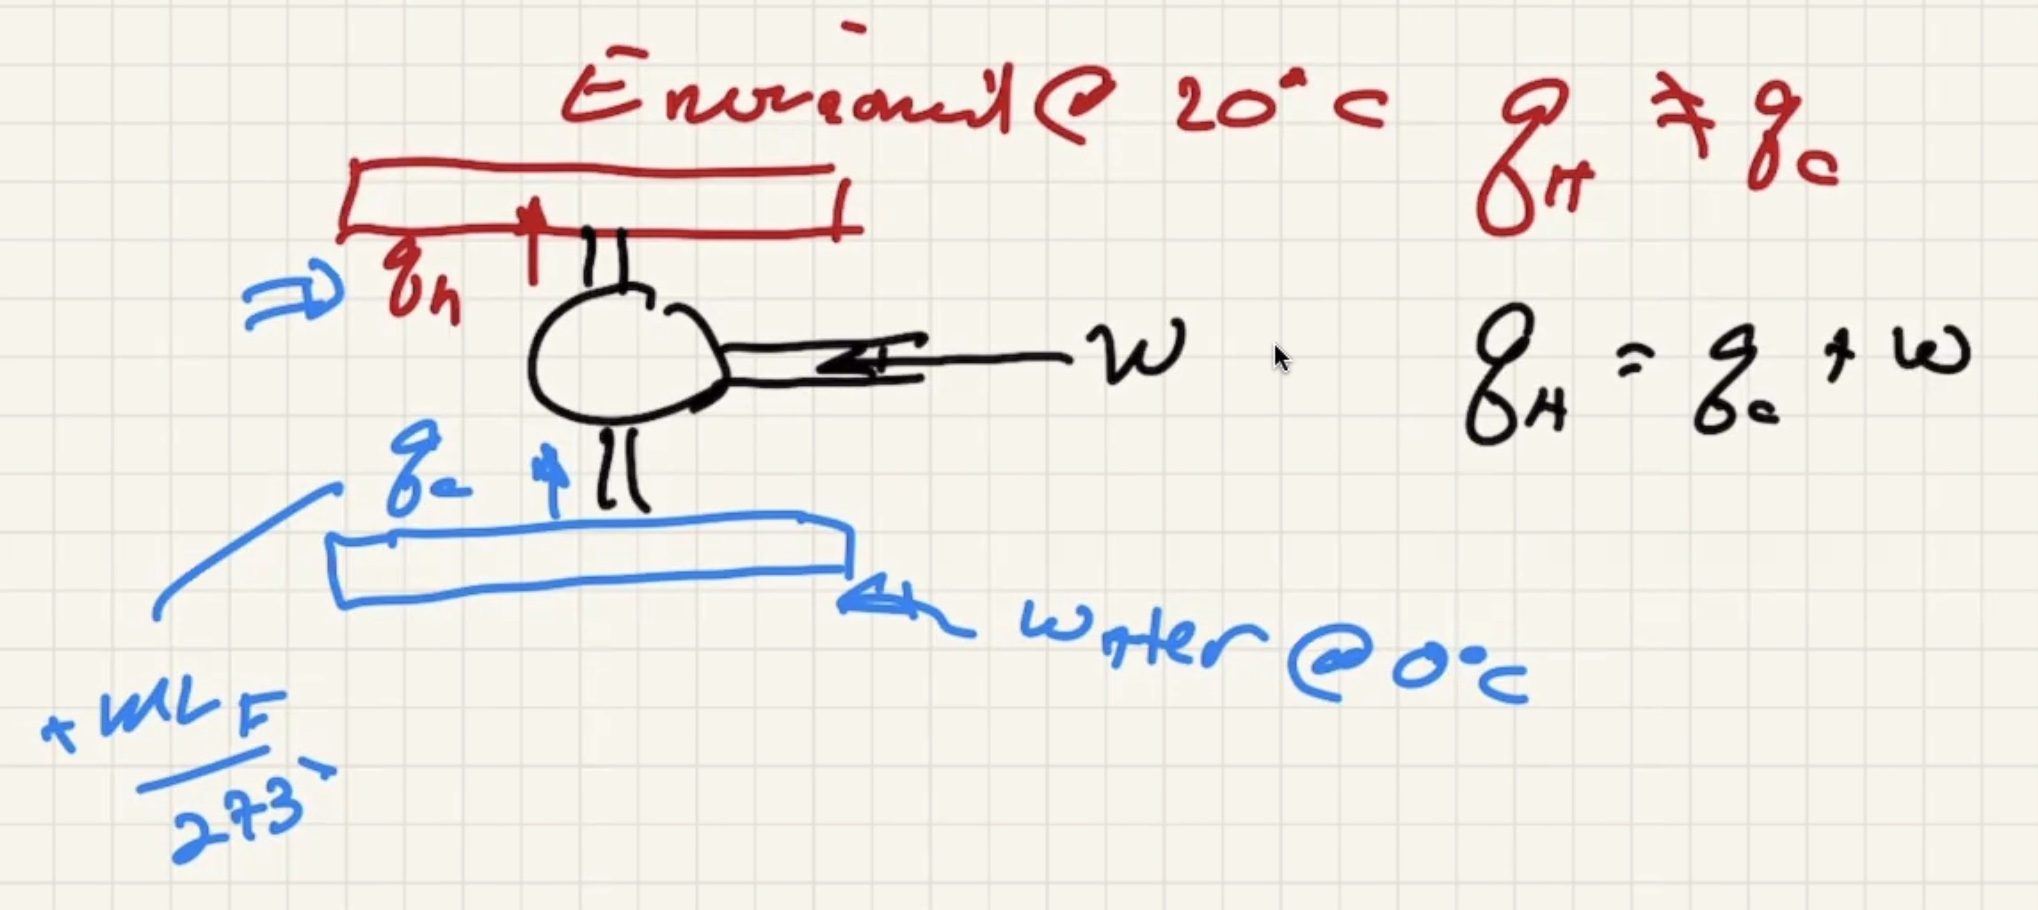 Environment @ 20°C
q_H ≠ q_c
q_h
W
q_H = q_c + W
q_c
Water @ 0°C
+ mL_F
273